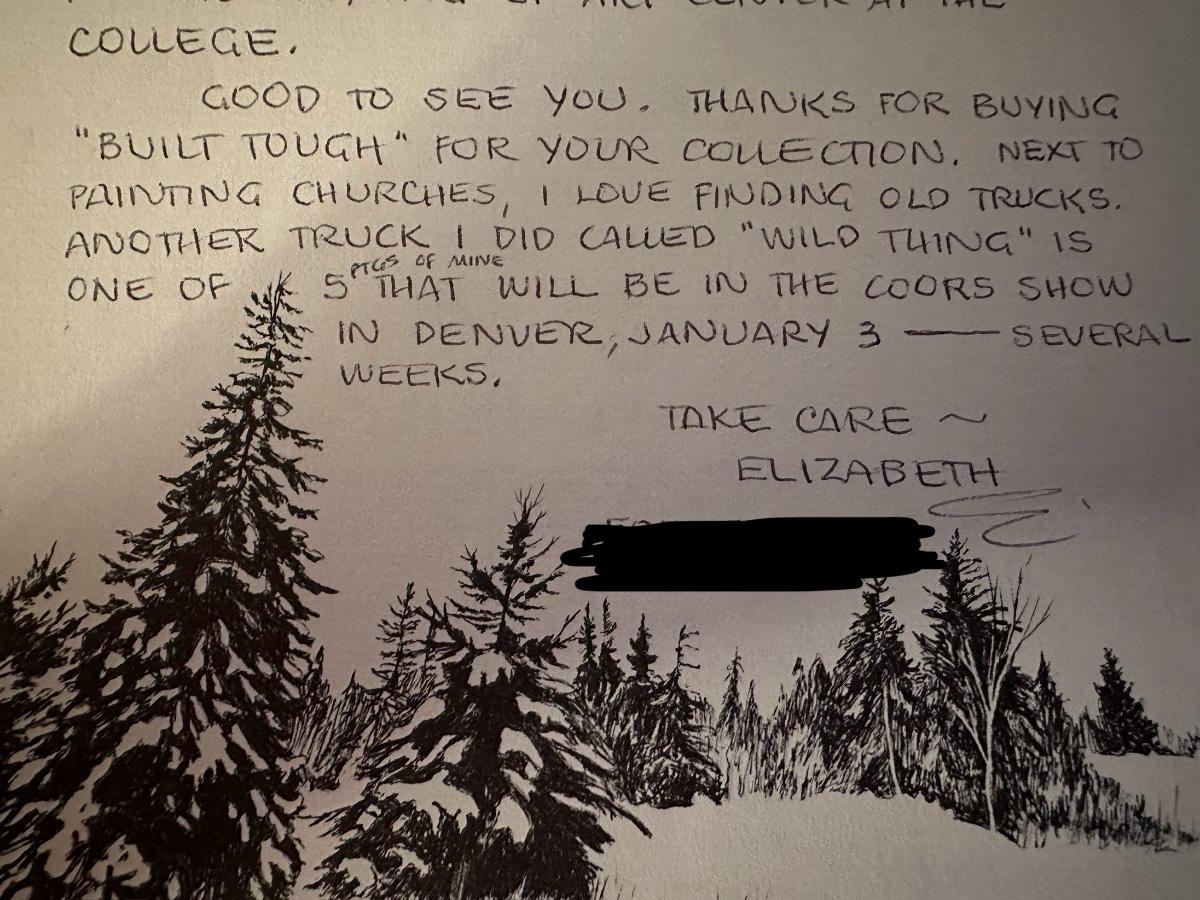 ART CENTER AT THE
COLLEGE.
GOOD TO SEE YOU. THANKS FOR BUYING
"BUILT TOUGH" FOR YOUR COLLECTION. NEXT TO
PAINTING CHURCHES, I LOVE FINDING OLD TRUCKS.
ANOTHER TRUCK I DID CALLED "WILD THING" IS
PTGS OF MINE
ONE OF 5 THAT WILL BE IN THE COORS SHOW
IN DENVER, JANUARY 3 — SEVERAL
WEEKS.
TAKE CARE ~
ELIZABETH